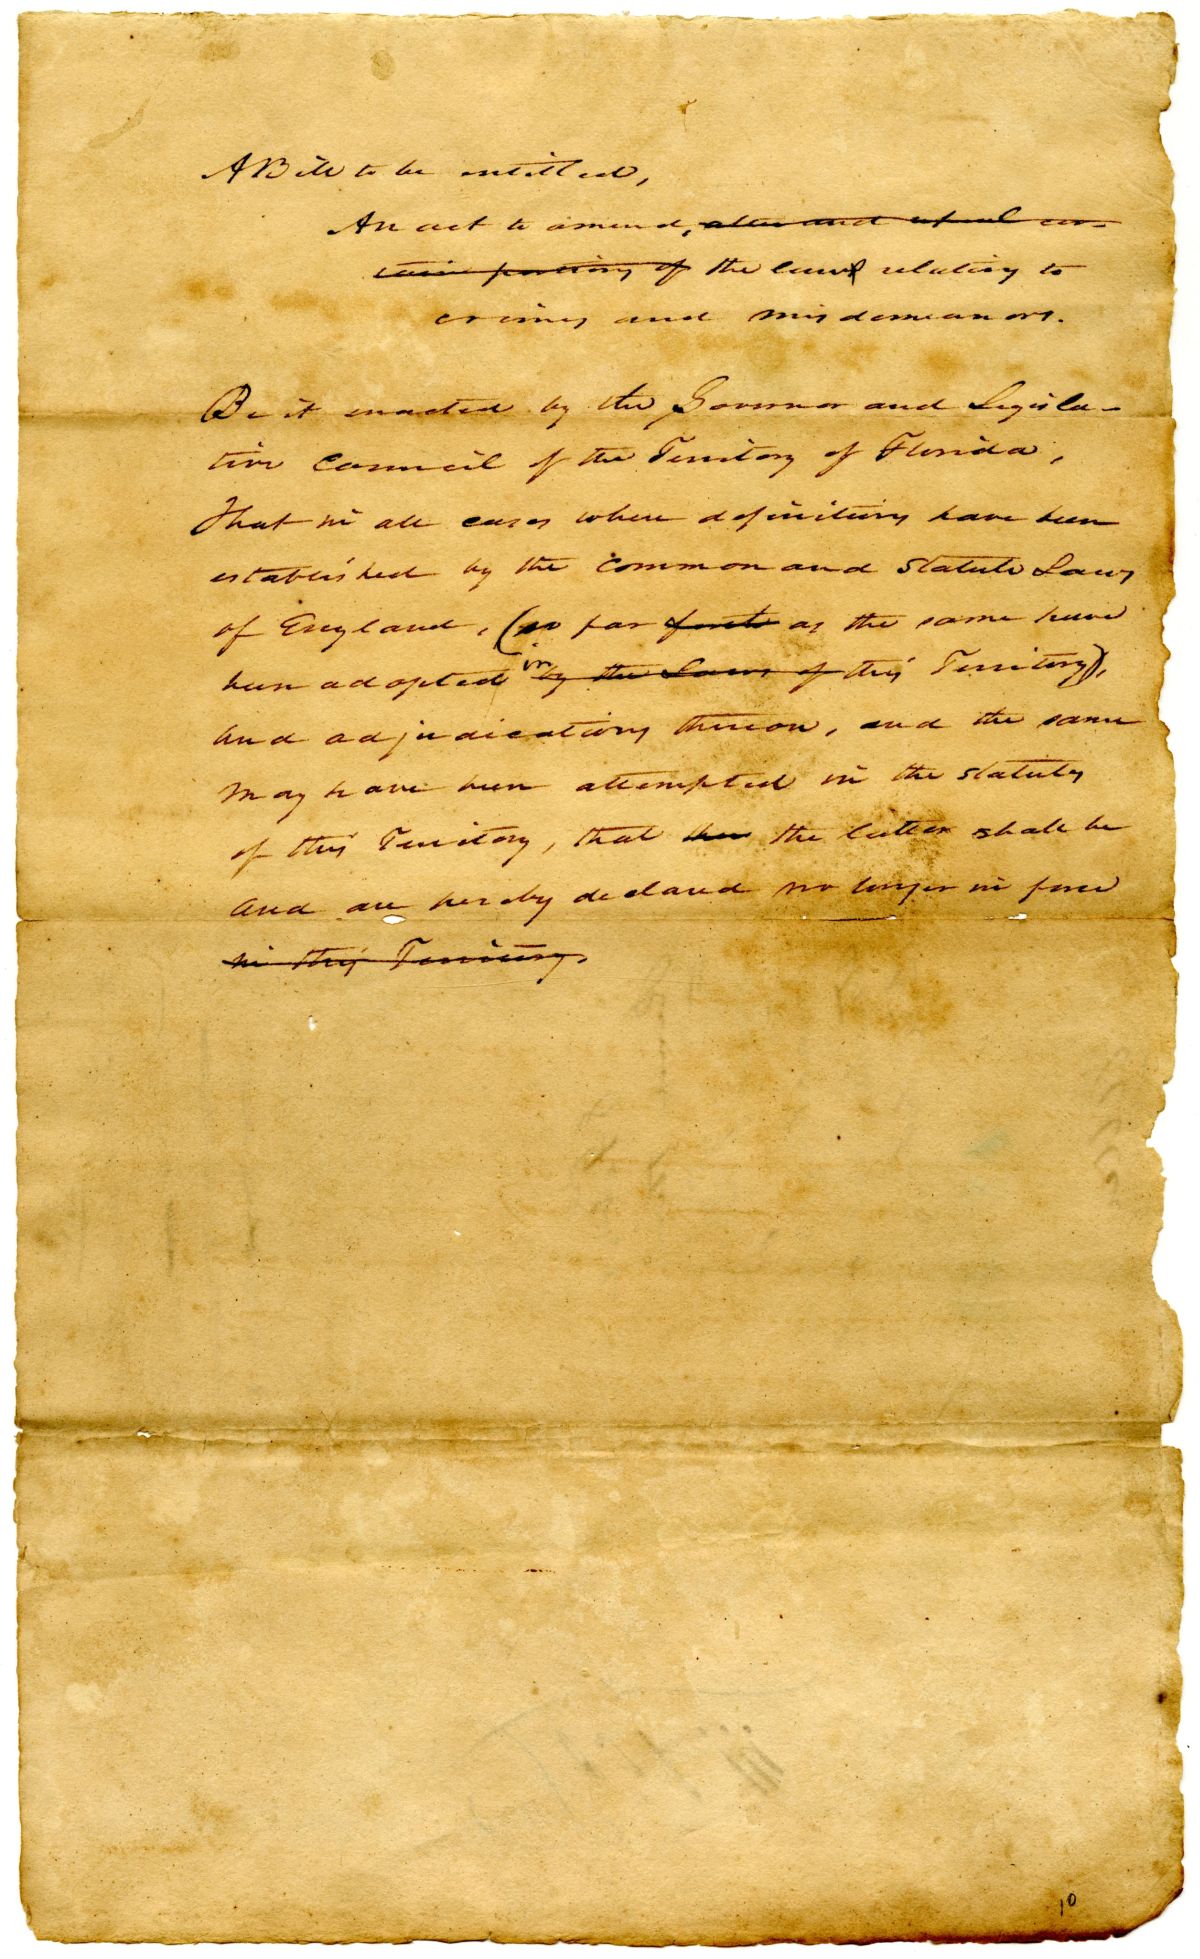 A Bill to be entitled,
An act to amend, alter and repeal cer-
tain portions of the laws relating to
crimes and misdemeanors.
Be it enacted by the Governor and Legisla-
tive Council of the Territory of Florida,
That in all cases where definitions have been
established by the Common and Statute Laws
of England, (so far forth as the same have
been adopted in by the Laws of this Territory),
and adjudications thereon, and the same
may have been attempted in the statutes
of this Territory, that the latter shall be
and are hereby declared no longer in force
in this Territory.
10